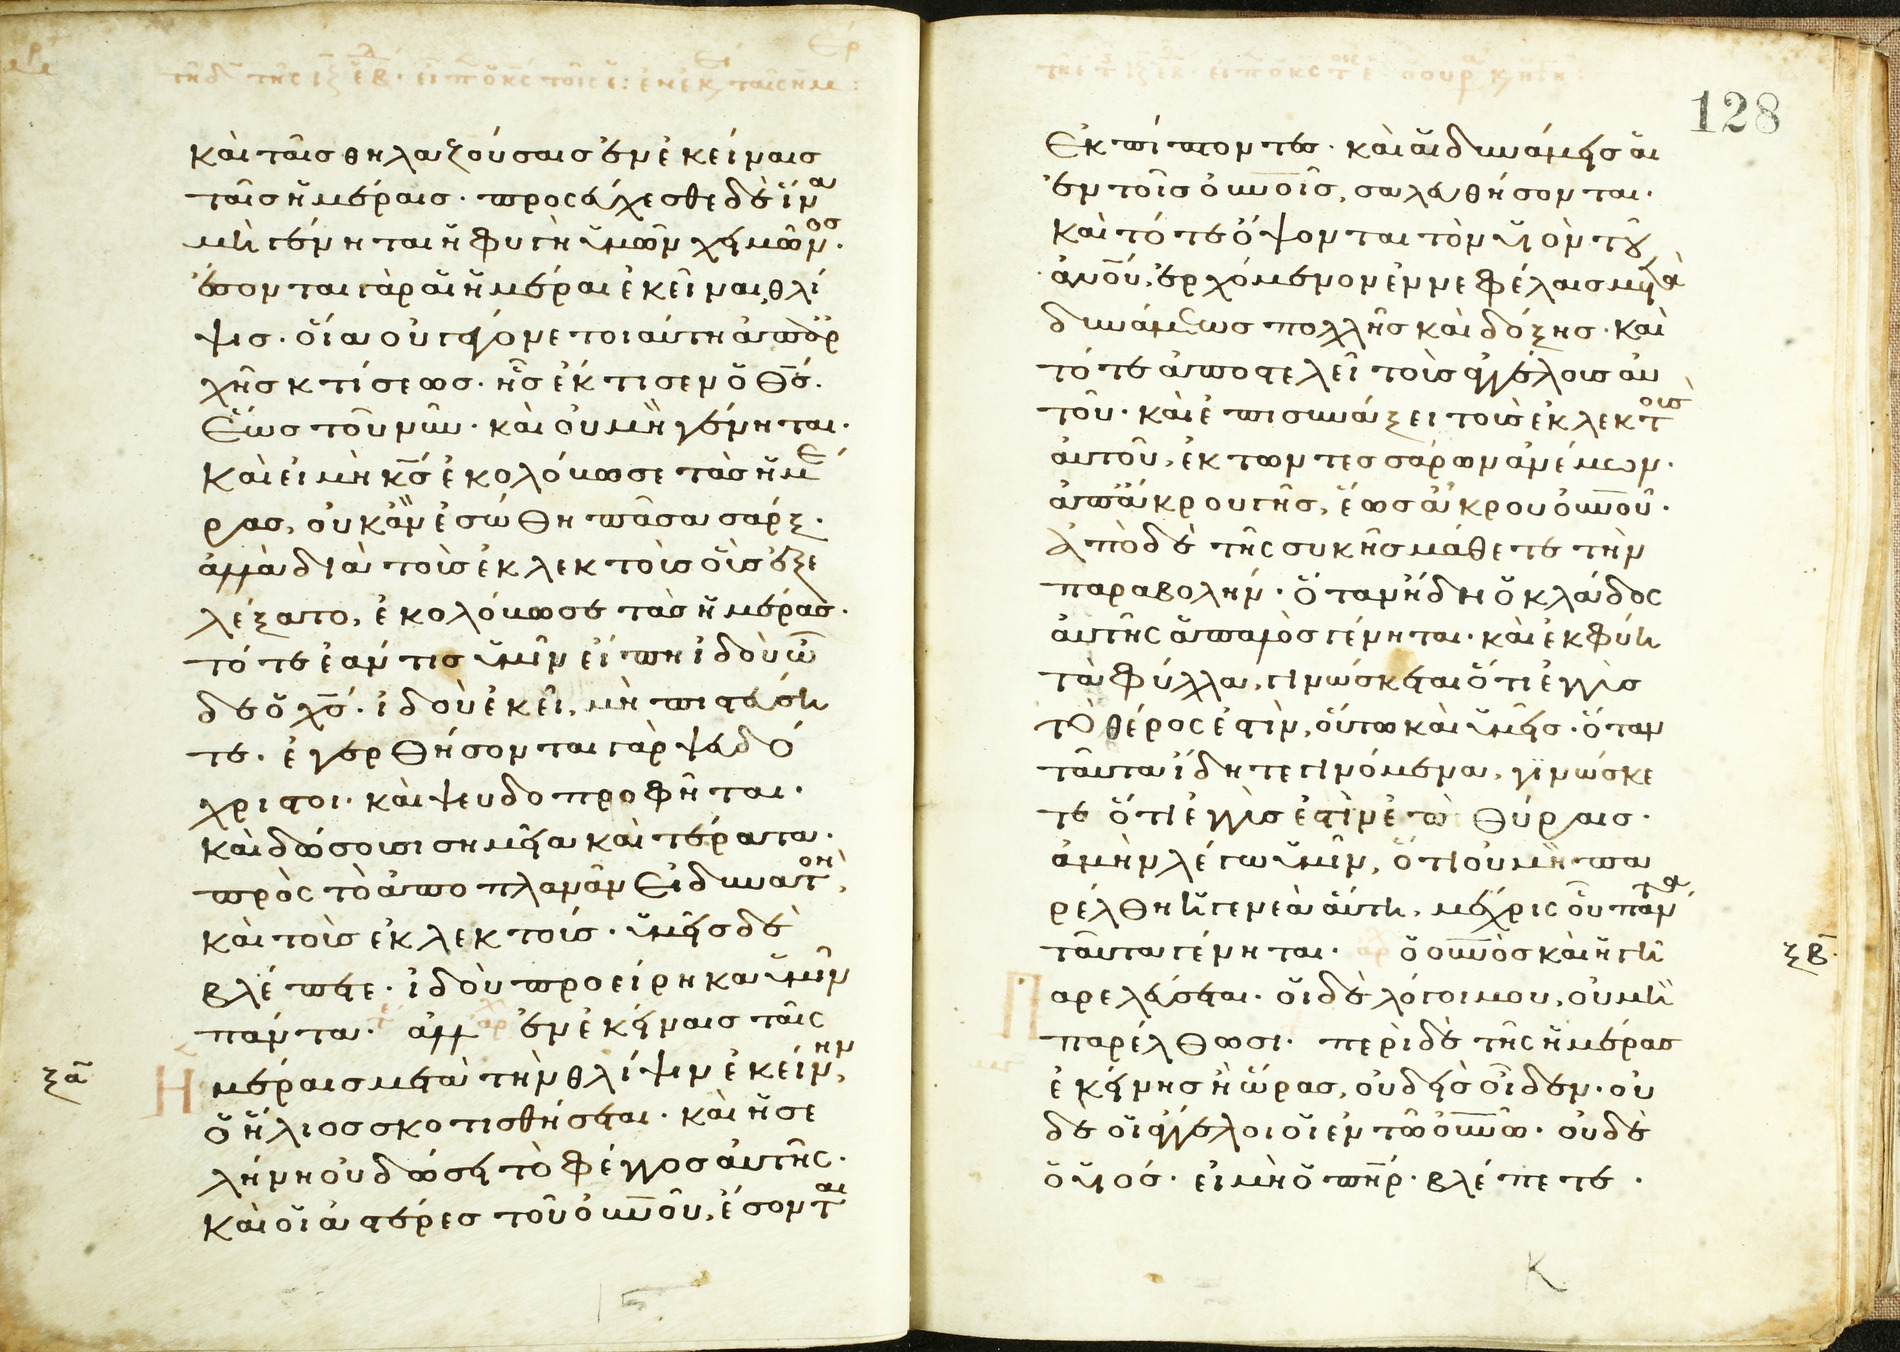 καὶ ταῖς θηλαζούσαις ἐν ἐκείναις
ταῖς ἡμέραις. προσεύχεσθε δὲ ἵνα
μὴ γένηται ἡ φυγὴ ὑμῶν χειμῶνος.
ἔσονται γὰρ αἱ ἡμέραι ἐκεῖναι, θλί
ψις. οἵα οὐ γέγονε τοιαύτη ἀπ' ἀρ
χῆς κτίσεως. ἧς ἔκτισεν ὁ θς̅.
ἕως τοῦ νῦν. καὶ οὐ μὴ γένηται.
καὶ εἰ μὴ κς̅ ἐκολόβωσε τὰς ἡμέ
ρας, οὐκ ἂν ἐσώθη πᾶσα σάρξ.
ἀλλὰ διὰ τοὺς ἐκλεκτοὺς οὓς ἐξε
λέξατο, ἐκολόβωσε τὰς ἡμέρας.
τότε ἐάν τις ὑμῖν εἴπη ἰδοὺ ὧ
δε ὁ χς̅. ἰδοὺ ἐκεῖ, μὴ πιστεύση
τε. ἐγερθήσονται γὰρ ψευδό
χριστοι. καὶ ψευδοπροφῆται.
καὶ δώσουσι σημεῖα καὶ τέρατα.
πρὸς τὸ ἀποπλανᾶν εἰ δυνατὸν,
καὶ τοὺς ἐκλεκτούς. ὑμεῖς δὲ
βλέπετε. ἰδοὺ προείρηκα ὑμῖν
πάντα. ἀλλ' ἐν ἐκείναις ταῖς
ξα Ἡμέραις μετὰ τὴν θλίψιν ἐκείνην,
ὁ ἥλιος σκοτισθήσεται. καὶ ἡ σε
λήνη οὐ δώσει τὸ φέγγος αὐτῆς.
καὶ οἱ ἀστέρες τοῦ οὐνοῦ̅, ἔσονται
128
ἐκπίπτοντες. καὶ αἱ δυνάμεις αἱ
ἐν τοῖς οὐνοῖς̅, σαλευθήσονται.
καὶ τότε ὄψονται τὸν υἱὸν τοῦ
ἀνοῦ̅, ἐρχόμενον ἐν νεφέλαις μετὰ
δυνάμεως πολλῆς καὶ δόξης. καὶ
τότε ἀποστελεῖ τοὺς ἀγγέλους αὐ
τοῦ. καὶ ἐπισυνάξει τοὺς ἐκλεκτοὺς
αὐτοῦ, ἐκ τῶν τεσσάρων ἀνέμων.
ἀπ' ἄκρου γῆς, ἕως ἄκρου οὐνοῦ̅.
Ἀπὸ δὲ τῆς συκῆς μάθετε τὴν
παραβολήν. ὅταν ἤδη ὁ κλάδος
αὐτῆς ἁπαλὸς γένηται. καὶ ἐκφύη
τὰ φύλλα, γινώσκεται ὅτι ἐγγὺς
τὸ θέρος ἐστὶν, οὕτω καὶ ὑμεῖς. ὅταν
ταῦτα ἴδητε γινόμενα, γινώσκε
τε ὅτι ἐγγύς ἐστὶν ἐπὶ θύραις.
ἀμὴν λέγω ὑμῖν, ὅτι οὐ μὴ πα
ρέλθη ἡ γενεὰ αὕτη, μέχρις οὗ πάντα
ταῦτα γένηται. ὁ οὐνὸς̅ καὶ ἡ γῆ ξβ
Παρελεύσεται. οἱ δὲ λόγοι μου, οὐ μὴ
παρέλθωσι. περὶ δὲ τῆς ἡμέρας
ἐκείνης ἢ ὥρας, οὐδεὶς οἶδεν. οὐ
δὲ οἱ ἄγγελοι οἱ ἐν τῶ οὐνῶ̅. οὐδὲ
ὁ υἱός. εἰ μὴ ὁ πηρ̅. βλέπετε.